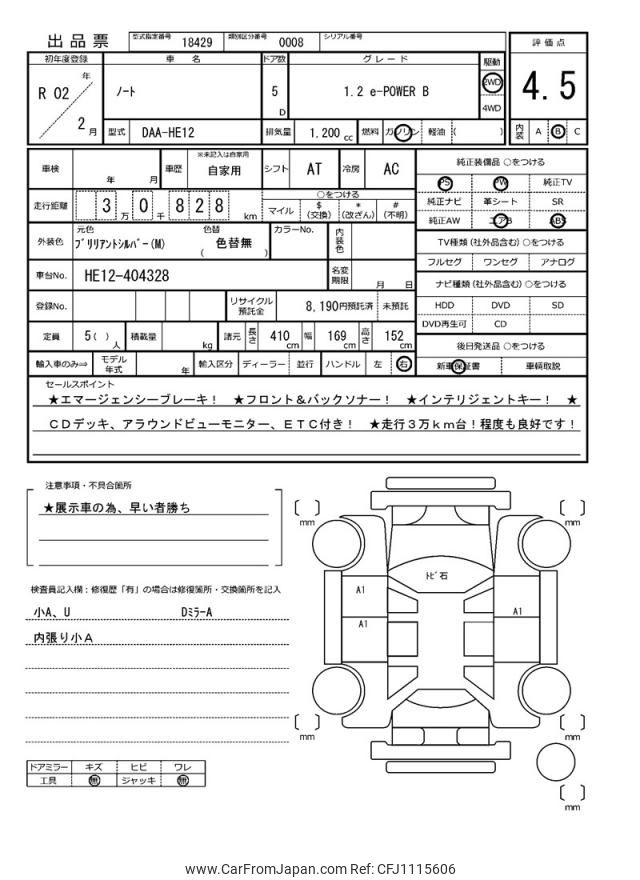 出品票 型式指定番号 18429 類別区分番号 0008 シリアル番号
評価点
4.5
内装 A B C
初年度登録 車名 ドア数 グレード 駆動
R 02 年 2 月
ノート 5 D 1.2 e-POWER B 2WD 4WD
型式 DAA-HE12 排気量 1,200 cc 燃料 ガソリン 軽油 ( )
車検 年 月 車歴 ※未記入は自家用 自家用 シフト AT 冷房 AC
走行距離 3 万 0 千 828 km
○をつける
マイル $ (交換) * (改ざん) # (不明)
外装色 元色 ブリリアントシルバー(M) 色替 ( 色替無 ) カラーNo. 内装色
車台No. HE12-404328 名変期限 月 日
登録No. リサイクル預託金 8,190円預託済 未預託
定員 5( ) 人 積載量 kg 諸元 長さ 410 cm 幅 169 cm 高さ 152 cm
輸入車のみ⇒ モデル年式 年 輸入区分 ディーラー 並行 ハンドル 左 右
純正装備品 ○をつける
PS PW 純正TV
純正ナビ 革シート SR
純正AW エアB ABS
TV種類(社外品含む) ○をつける
フルセグ ワンセグ アナログ
ナビ種類(社外品含む) ○をつける
HDD DVD SD
DVD再生可 CD
後日発送品 ○をつける
新車保証書 車輌取説
セールスポイント
★エマージェンシーブレーキ! ★フロント&バックソナー! ★インテリジェントキー! ★
CDデッキ、アラウンドビューモニター、ETC付き! ★走行3万km台!程度も良好です!
注意事項・不具合箇所
★展示車の為、早い者勝ち
検査員記入欄:修復歴「有」の場合は修復箇所・交換箇所を記入
小A、U Dミラー A
内張り小A
ドアミラー キズ ヒビ ワレ
工具 無 ジャッキ 無
mm
mm
トビ石
A1
A1
A1
mm
mm
mm
www.CarFromJapan.com Ref: CFJ1115606